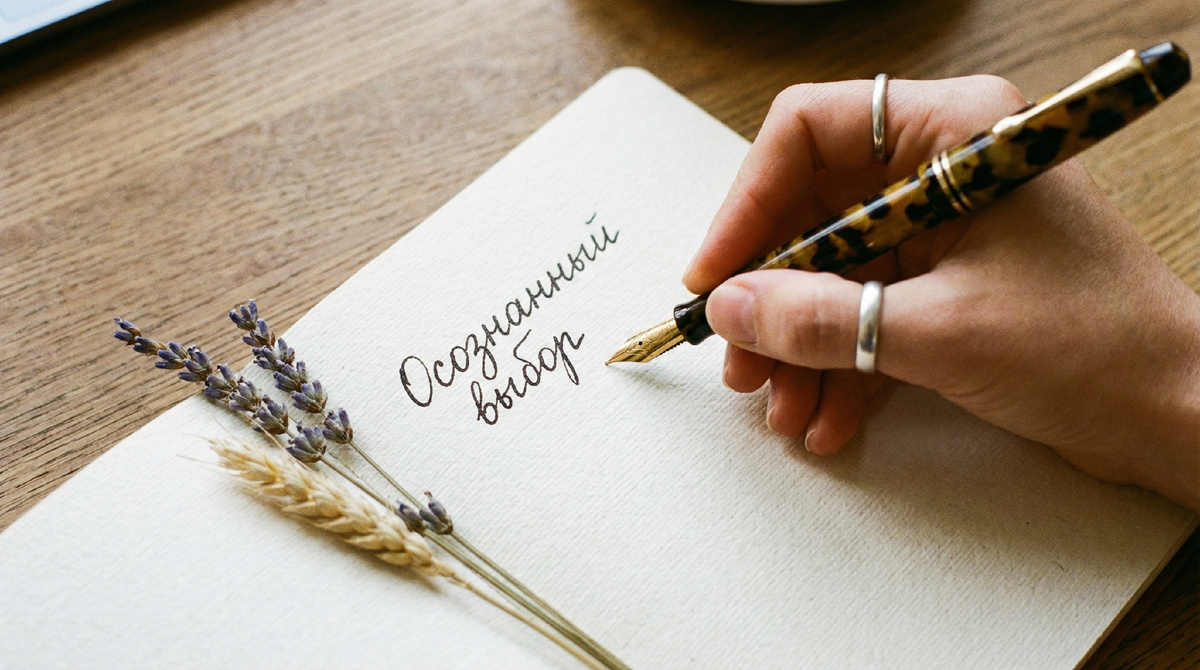 Осознанный
выбор